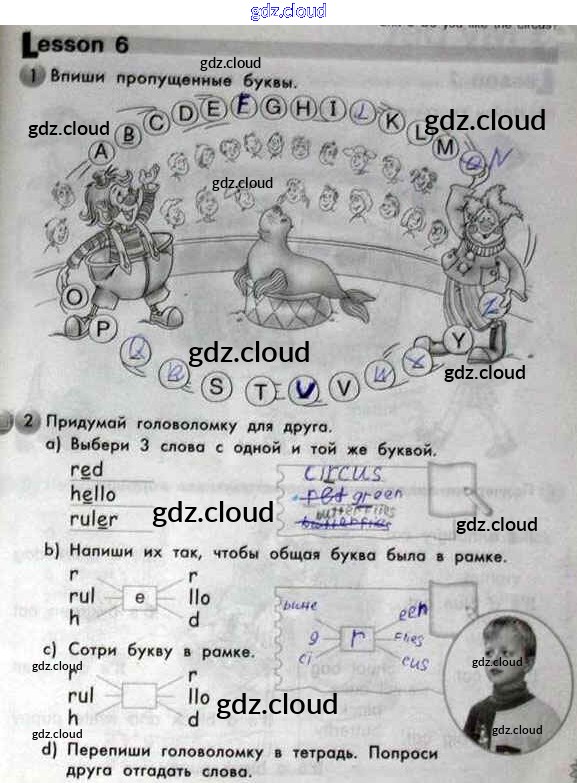 gdz.cloud
Unit 2 Do you like the circus?
Lesson 6
gdz.cloud
1 Впиши пропущенные буквы.
A B C D E F G H I J K L M N
gdz.cloud
gdz.cloud
gdz.cloud
gdz.cloud
O P Q R S T U V W X Y Z
gdz.cloud
gdz.cloud
2 Придумай головоломку для друга.
a) Выбери 3 слова с одной и той же буквой.
red circus
hello green
ruler butterflies
gdz.cloud
gdz.cloud
b) Напиши их так, чтобы общая буква была в рамке.
r r
rul e llo
h d
een
g r flies
ci cus
gdz.cloud
c) Сотри букву в рамке.
gdz.cloud
gdz.cloud
r r
rul llo
h d
gdz.cloud
gdz.cloud
gdz.cloud
d) Перепиши головоломку в тетрадь. Попроси
друга отгадать слова.